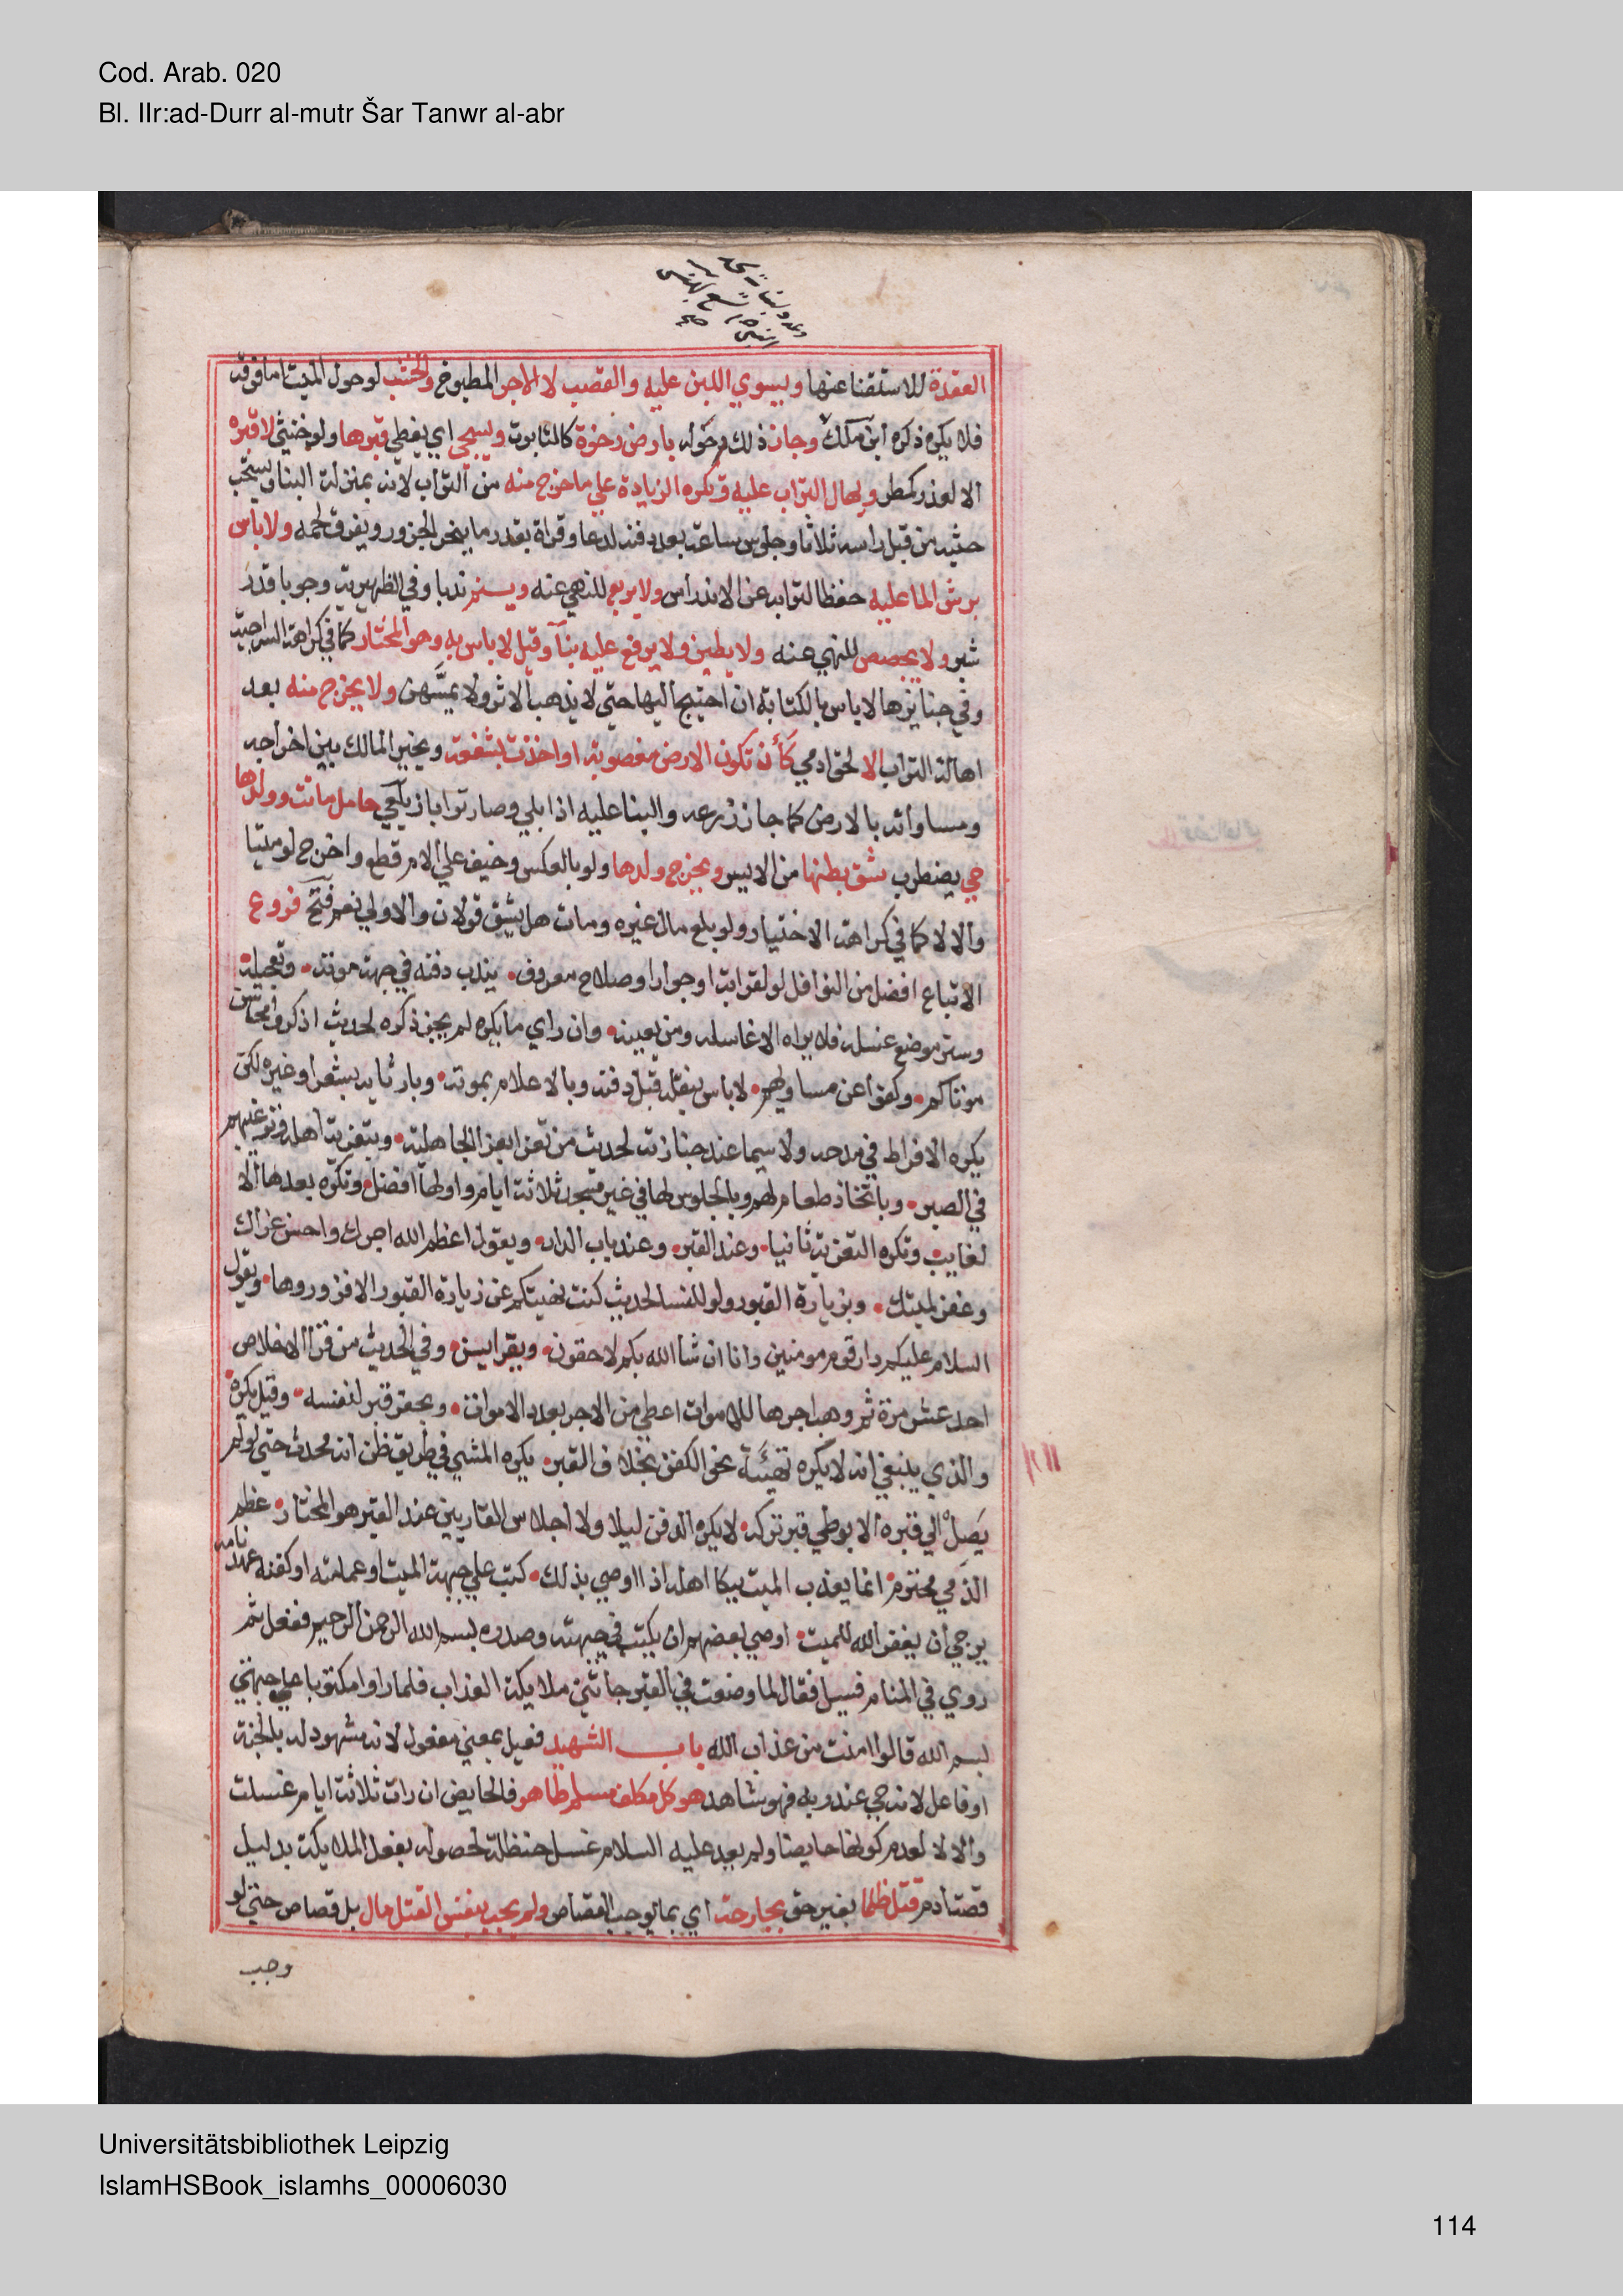 Cod. Arab. 020
Bl. IIr:ad-Durr al-mutr Šar Tanwr al-abr
العقدة للاستغنا عنها ويسوي اللبن عليه والقصب لا الاجر المطبوخ والخشب لو حول الميت اما فوقه
فلا يكره ذكره ابن ملك وجاز ذلك حوله بارض رخوة كالتابوت ويسجي اي يغطي قبرها ولو خنثي لا قبره
الا لعذر كمطر ويهال التراب عليه وتكره الزيادة علي ما خرج منه من التراب لانه بمنزلة البنا ويستحب
حثيه من قبل راسه ثلاثا وجلوس ساعة بعد دفنه لدعا وقراة بقدر ما ينحر الجزور ويفرق لحمه ولا باس
برش الما عليه حفظا لترابه عن الاندراس ولا يربع للنهي عنه ويسنم ندبا وفي الظهيرية وجوبا قدر
شبر ولا يجصص للنهي عنه ولا يطين ولا يرفع عليه بنآ وقيل لا باس به وهو المختار كما في كراهة السراجية
وفي جنايزها لا باس بالكتابة ان احتيج اليها حتي لا يذهب الاثر ولا يمتهن ولا يخرج منه بعد
اهالة التراب الا لحق ادمي كأن تكون الارض مغصوبة او اخذت بشفعة ويخير المالك بين اخراجه
ومساواته بالارض كما جاز زرعه والبنا عليه اذا بلي وصار ترابا زيلعي حامل ماتت وولدها
حي يضطرب شق بطنها من الايسر ويخرج ولدها ولو بالعكس وخيف علي الام قطع واخرج لو ميتا
والا لا كما في كراهة الاختيار ولو بلع مال غيره ومات هل يشق قولان والاولي نعم فتح فروع
الاتباع افضل من النوافل لو لقرابة او جوار او صلاح معروف • يندب دفنه في جهة موته • وتعجيله
وستر موضع غسله فلا يراه الا غاسله ومن يعينه • وان راي ما يكره لم يجز ذكره لحديث اذكروا محاسن
موتاكم • وكفوا عن مساويهم • لا باس بنقله قبل دفنه وبالاعلام بموته • وبارثايه بشعر او غيره لكن
يكره الافراط في مدحه ولا سيما عند جنازته لحديث من تعزا بعزا الجاهلية • وبتعزية اهله وترغيبهم
في الصبر • وباتخاذ طعام لهم وبالجلوس لها في غير مسجد ثلاثة ايام واولها افضل • وتكره بعدها الا
لغايب • وتكره التعزية ثانيا • وعند القبر • وعند باب الدار • ويقول اعظم الله اجرك واحسن عزاك
وغفر لميتك • وبزيارة القبور ولو للنسا لحديث كنت نهيتكم عن زيارة القبور الا فزوروها • ويقول
السلام عليكم دار قوم مومنين وانا ان شا الله بكم لاحقون • ويقرا يس • وفي الحديث من قرا الاخلاص
احد عشر مرة ثم وهب اجرها للاموات اعطي من الاجر بعدد الاموات • ويحفر قبر لنفسه • وقيل يكره
والذي ينبغي انه لا يكره تهيئة نحو الكفن بخلاف القبر • يكره المشي في طريق ظن انه محدث حتي لو لم
يصل الي قبره الا بوطي قبر تركه • لا يكره الدفن ليلا ولا اجلاس القاريين عند القبر هو المختار • عظم
الذمي محترم • انما يعذب الميت ببكا اهله اذا اوصي بذلك • كتب علي جبهة الميت او عمامته او كفنه عهد نامه
يرجي ان يغفر الله للميت • اوصي بعضهم ان يكتب في جبهته وصدره بسم الله الرحمن الرحيم ففعل ثم
روي في المنام فسيل فقال لما وضعت في القبر جاتني ملايكة العذاب فلما راوا مكتوبا علي جبهتي
بسم الله قالوا امنت من عذاب الله باب الشهيد فعيل بمعني مفعول لانه مشهود له بالجنة
او فاعل لانه حي عند ربه فهو شاهد هو كل مكلف مسلم طاهر فالحايض ان رات ثلاثة ايام غسلت
والا لا لعدم كونها حايضا ولم يعد عليه السلام غسل حنظلة لحصوله بفعل الملايكة بدليل
قصة ادم قتل ظلما بغير حق بجارحة اي بما يوجب القصاص ولم يجب بنفس القتل مال بل قصاص حتي لو
وجب
Universitätsbibliothek Leipzig
IslamHSBook_islamhs_00006030
114